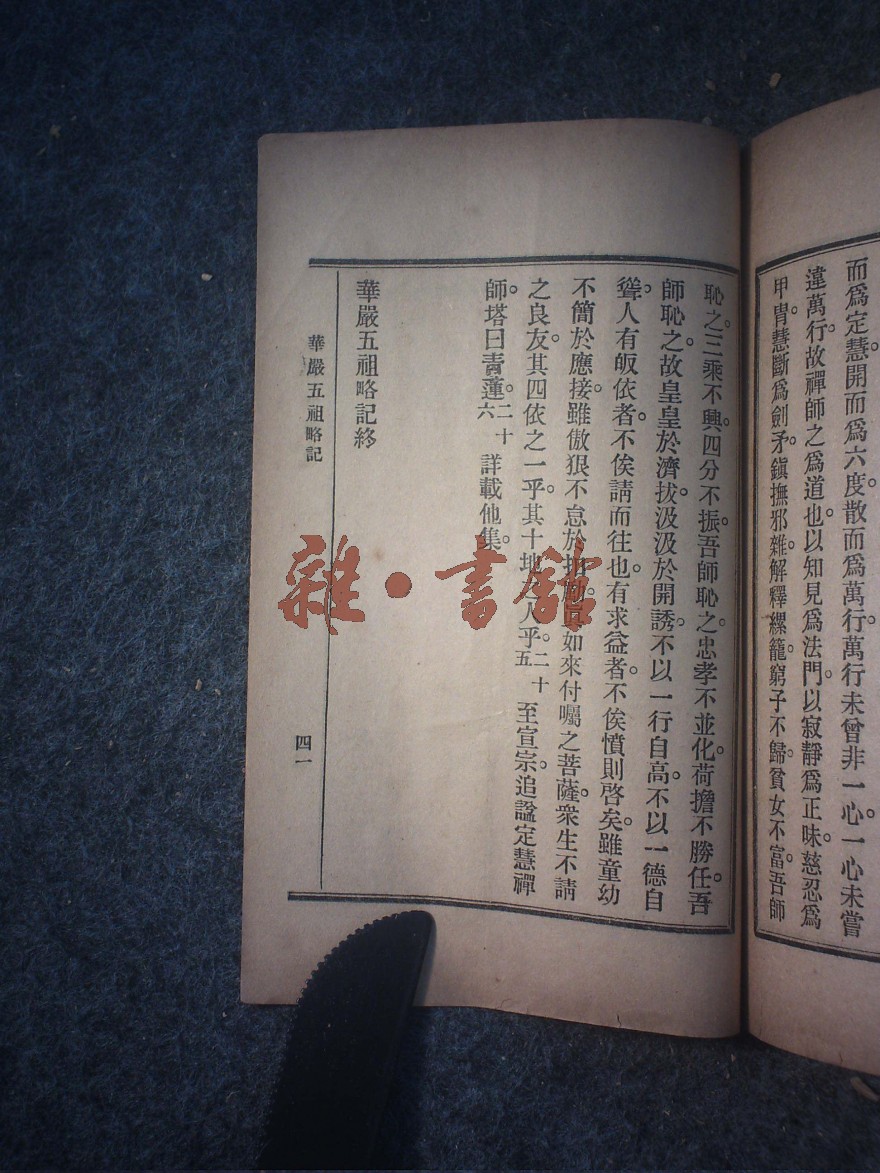 而爲定慧。開而爲六度。散而爲萬行。萬行未曾非一心。一心未嘗
違萬行。故禪師之爲道也。以知見爲法門。以寂靜爲正味。慈忍爲
甲冑。慧斷爲劍矛。鎭撫邪雜。解釋縲籠。窮子不歸。貧女不富。吾師
恥之。三乘不興。四分不振。吾師恥之。忠孝不並化。荷擔不勝任。吾
師恥之。故皇皇於濟拔。汲汲於開誘。不以一行自高。不以一德自
聳。人有皈依者。不俟請而往也。有求益者。不俟憤則啓矣。雖童幼
不簡於應接。雖傲狠不怠於 如來付囑之菩薩。衆生不請
之良友。其四依之一乎。其十地 人乎。二十五 至宣宗。追諡定慧禪
師。塔曰青蓮。二十六 詳載他集。
華嚴五祖略記終
華嚴五祖略記
四一
雜·書館